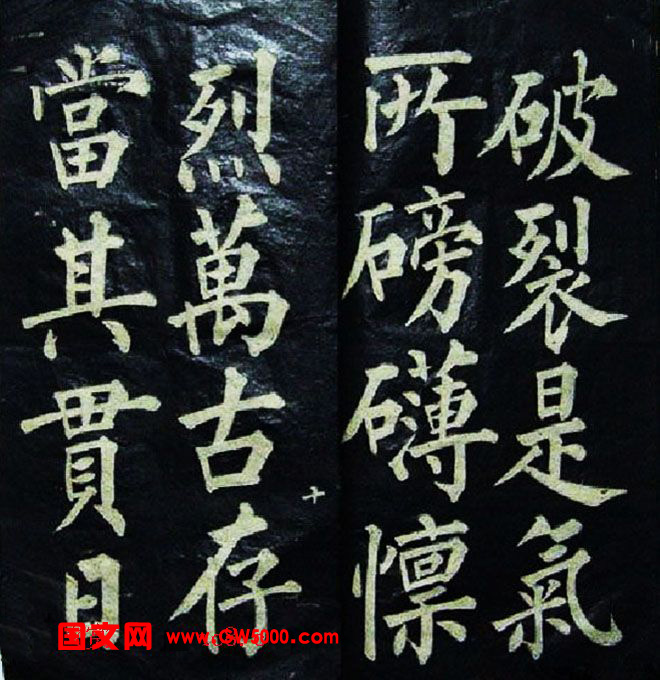 破裂是氣
所磅礴懔
烈萬古存
當其貫日
国文网 www.GW5000.com